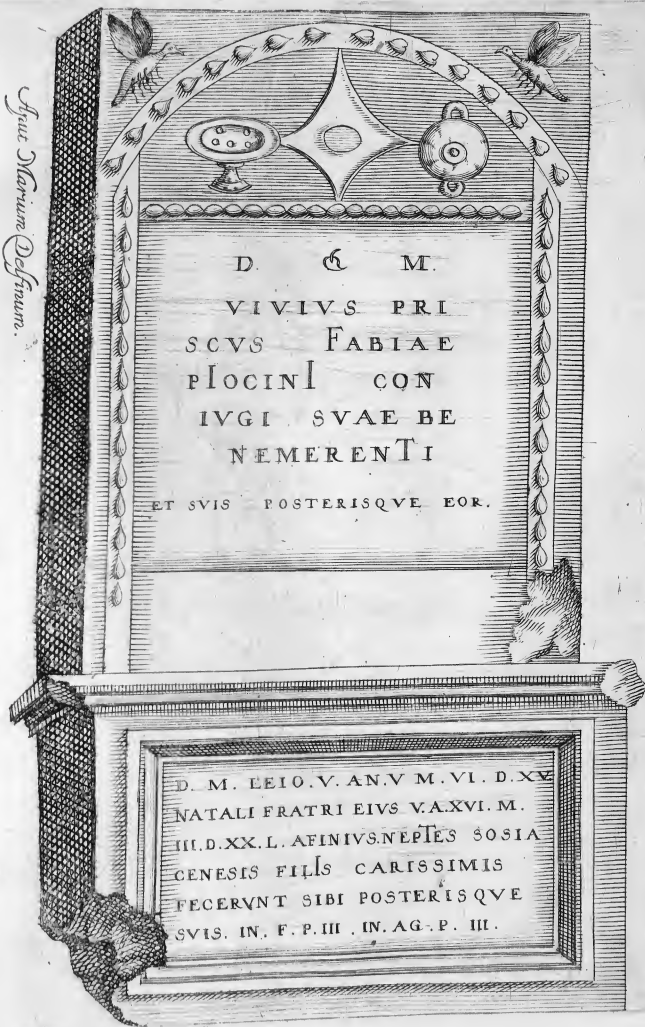 D. M.
VIVIVS PRI
SCVS FABIAE
PIOCINI CON
IVGI SVAE BE
NEMERENTI
ET SVIS POSTERISQVE EOR.
D. M. LEIO. V. AN. V M. VI. D. XV.
NATALI FRATRI EIVS V. A. XVI. M.
III. D. XX. L. AFINIVS. NEPTES SOSIA
GENESIS FILIS CARISSIMIS
FECERVNT SIBI POSTERISQVE
SVIS. IN. F. P. III. IN. AG. P. III.
Aput Marium Delfinum.